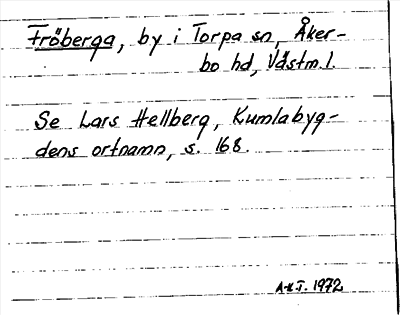 Fröberga, by i Torpa sn, Åker-
bo hd, Västm.l.
Se Lars Hellberg, Kumlabyg-
dens ortnamn, s. 168.
A-K.T. 1972